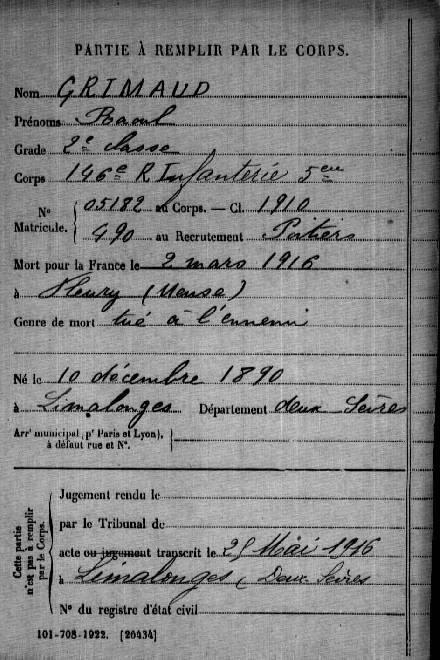 PARTIE À REMPLIR PAR LE CORPS.
Nom GRIMAUD
Prénoms Raoul
Grade 2e classe
Corps 146e R Infanterie 5eme
No Matricule. 05182 au Corps. — Cl. 1910
490 au Recrutement Poitiers
Mort pour la France le 2 mars 1916
à Fleury (Meuse)
Genre de mort tué à l'ennemi
Né le 10 décembre 1890
à Limalonges Département deux Sèvres
Arrt municipal (pr Paris et Lyon),
à défaut rue et No.
Cette partie n'est pas à remplir par le Corps.
Jugement rendu le
par le Tribunal de
acte ou jugement transcrit le 25 Mai 1916
à Limalonges (Deux Sèvres
No du registre d'état civil
101-708-1922. [20434]